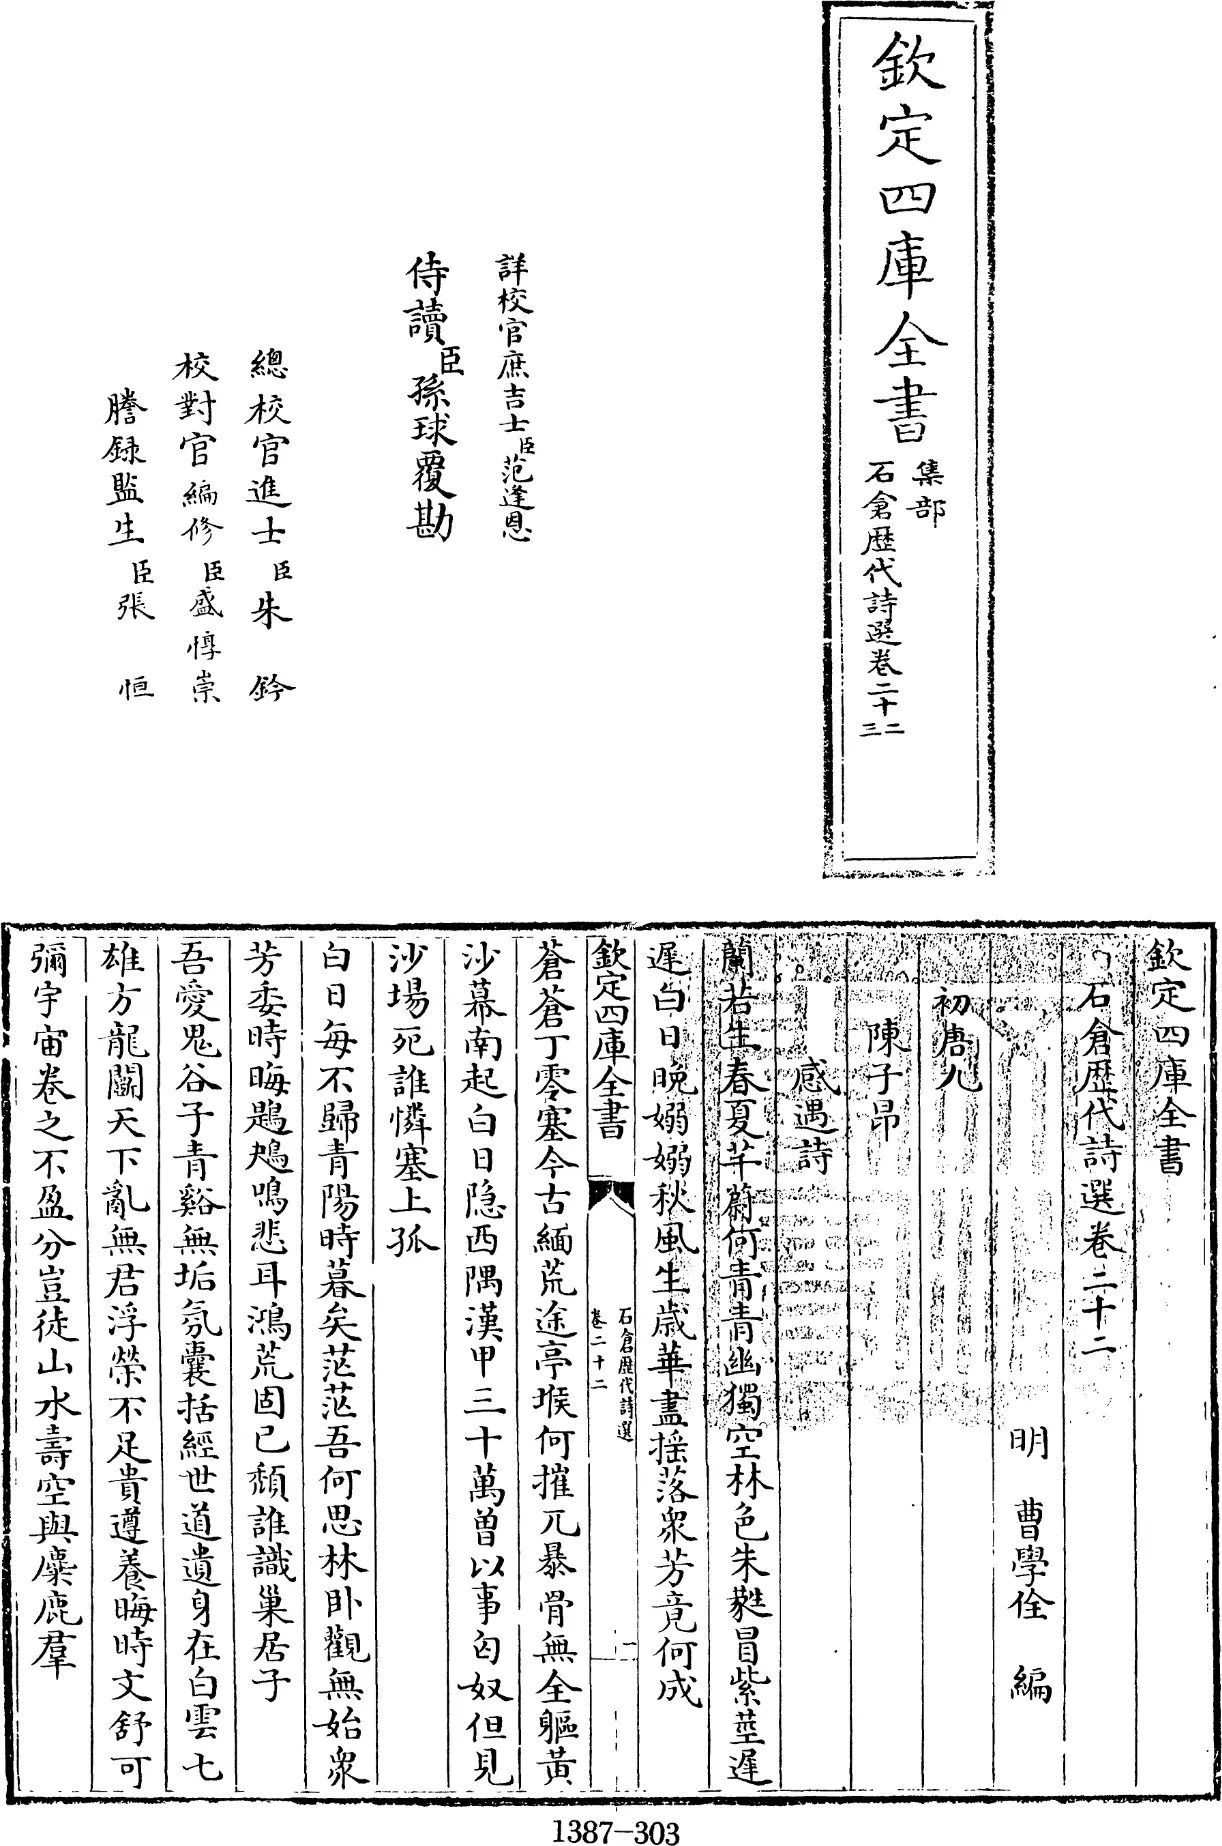 欽定四庫全書
集部
石倉歴代詩選卷二十二
三
詳校官庶吉士臣范逢恩
侍讀臣孫球覆勘
總校官進士臣朱鈐
校對官編修臣盛惇崇
謄録監生臣張恒
欽定四庫全書
石倉歴代詩選卷二十二
明 曹學佺 編
初唐九
陳子昂
感遇詩
蘭若生春夏芊蔚何青青幽獨空林色朱蕤冒紫莖遲
遲白日晚嫋嫋秋風生歲華盡揺落衆芳竟何成
欽定四庫全書
石倉歴代詩選
卷二十二
一
蒼蒼丁零塞今古緬荒途亭堠何摧兀暴骨無全軀黃
沙幕南起白日隐西隅漢甲三十萬曾以事匈奴但見
沙場死誰憐塞上孤
白日每不歸青陽時暮矣茫茫吾何思林卧觀無始衆
芳委時晦鶗鴂鳴悲耳鴻荒固已頽誰識巢居子
吾愛鬼谷子青谿無垢氛囊括經世道遺身在白雲七
雄方龍鬬天下亂無君浮榮不足貴遵養晦時文舒可
彌宇宙卷之不盈分豈徒山水壽空與麋鹿羣
1387-303